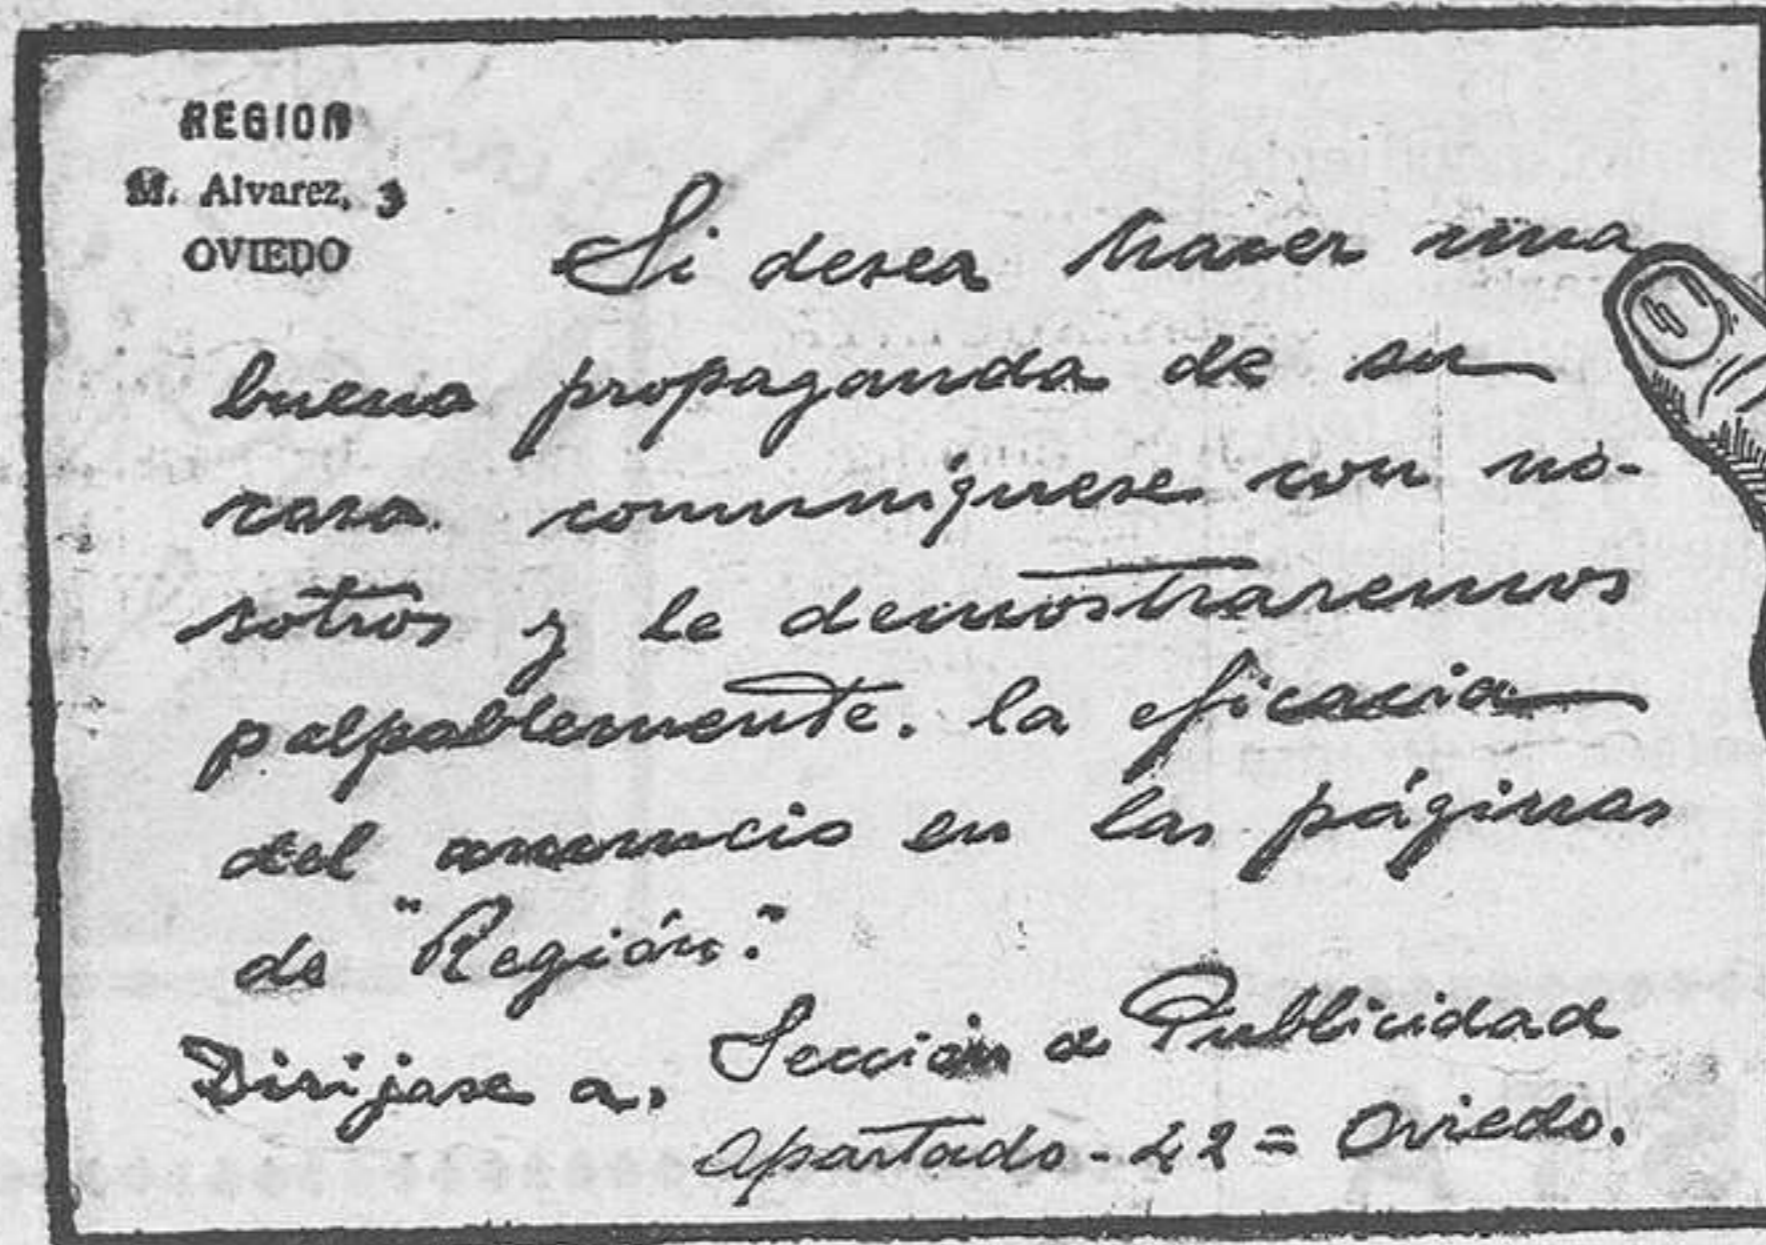 REGION
M. Alvarez, 3
OVIEDO
Si desea hacer una
buena propaganda de su
casa comuníquese con no-
sotros y le demostraremos
palpablemente. la eficacia
del anuncio en las páginas
de "Región."
Dirijase a, Sección de Publicidad
apartado - 42 = Oviedo.